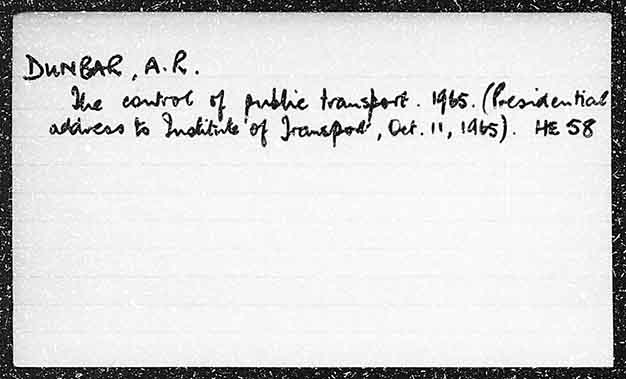 DUNBAR, A.R.
The control of public transport. 1965. (Presidential
address to Institute of Transport, Oct. 11, 1965). HE 58